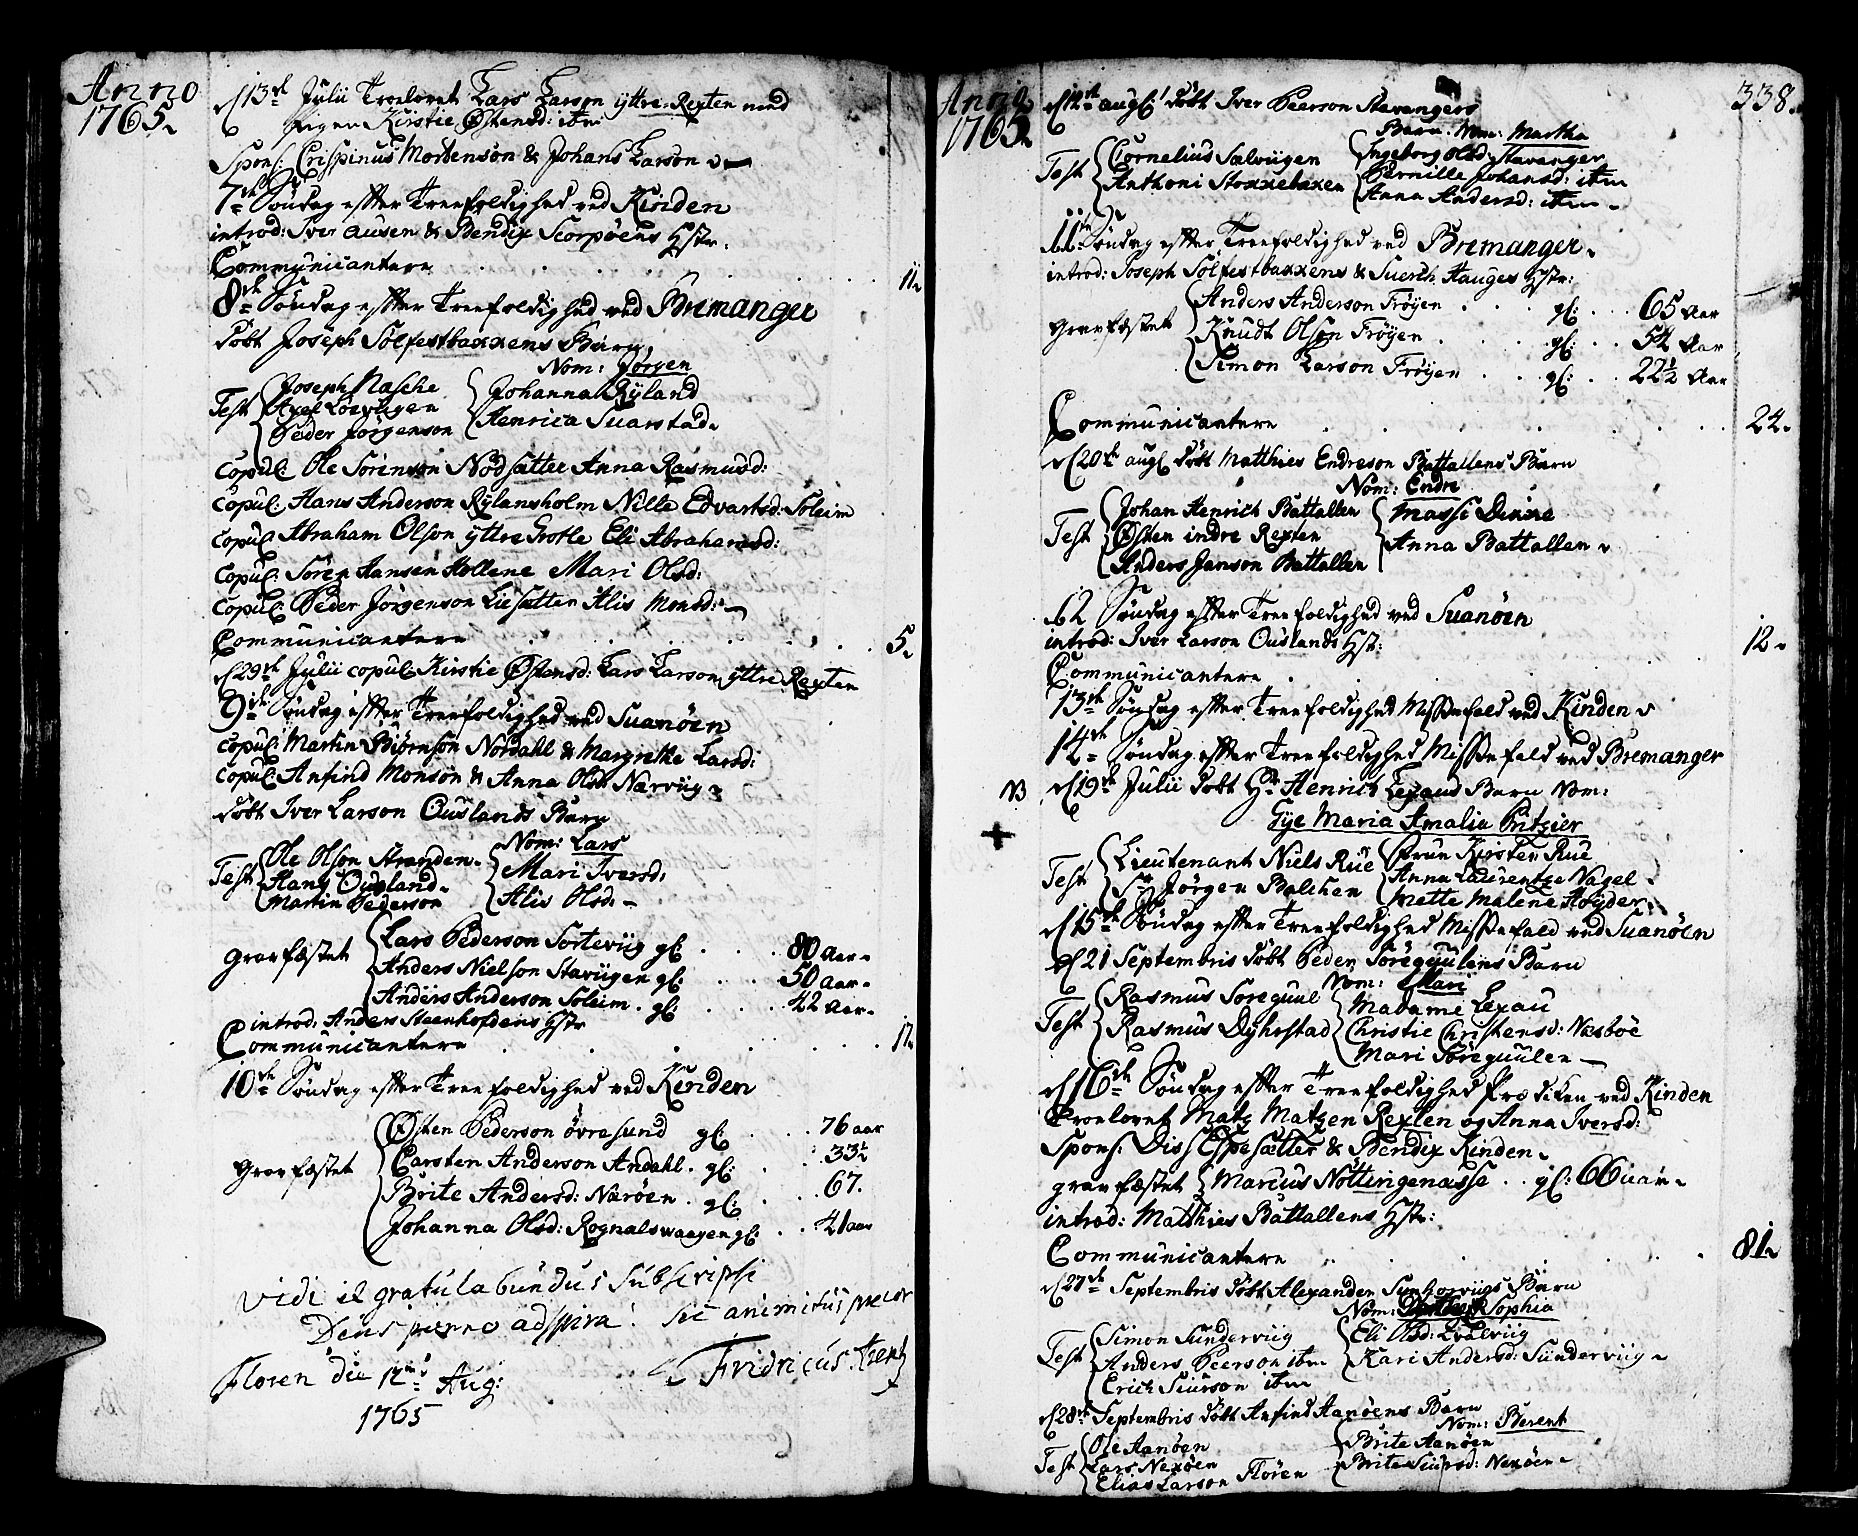 Anno
1765.
d 13de Julii Troelovet Lars Larson yttre Rexten med
Pigen Kirstie Østensd: ibm
Spons: Crispinus Mortenson & Johans Larson
7de Søndag effter Treefoldighed ved Kinden
introd: Iver ausen & Bendix Scorpøens Hstr.
Communicantere . . . 11.
8de Søndag effter Treefoldighed ved Bremanger
døbt Joseph Solfestbaxxens Barn
Nom: Jørgen
Test Joseph Nasche
Axel Løeviigen
Peder Jørgenson
Johanna Ryland
Henrica Suarstad.
Copul: Ole Sørenson Nødsætter Anna Rasmusd:
Copul: Hans Anderson Rylansholm Nille Edvartsd: Soleim
Copul: Abraham Olson yttre Grotle Eli Abrahamsd:
Copul: Søren Hansen Hollene Mari Olsd:
Copul: Peder Jørgenson Liesætter Alis Monsd:
Communicantere . . . 5.
d 29de Julii copul: Kirstie Østensd: Lars Larson yttre Rexten
9de Søndag effter Treefoldighed ved Suanøen
Copul: Martin Biørnson Nordahl & Margrethe Larsd:
Copul: Anfind Monson & Anna Olsd: Narviig
døbt Iver Larson Ouslands Barn
Nom: Lars
Test Ole Olson Stranden
Hans Ousland
Martin Pederson
Mari Iversd:
Alis Olsd:
Gravfæstet Lars Pederson Sorteviig gl: . . 80 Aar
Anders Nielson Staviigen gl: . . 50 Aar
Anders Anderson Soleim gl: . . 42 Aar
introd: Anders Steenhofdens Hstr
Communicantere . . . 17.
10de Søndag effter Treefoldighed ved Kinden
Gravfæstet Østen Pederson øvresund gl: . . 76 aar
Carsten Anderson Andahl gl: . . 33½
Brite Andersd: Narøen gl: . . 67.
Johanna Olsd: Rognalswaagen gl: . . 41 aar
Vidi et gratulabundus subscripsi
Deus porro adspira! sic animitus precor
Floren die 12mo Aug: Fridricus Arentz
1765
Anno 338.
1765.
d 12te aug: døbt Iver Pearson Stavangers
Barn. Nom: Martha
Test Cornelius Sælviigen
Anthoni Stoxxebaxen
Ingeborg Olsd: Stavanger
Pernille Johansd: ibm
Anna Andersd: ibm
11te Søndag effter Treefoldighed ved Bremanger
introd: Joseph Solfestbaxxens & Siuerth Hauges Hstr:
Gravfæstet Anders Anderson Frøyen . . gl: . . 65 Aar
Knudt Olson Frøyen . . gl: . . 54 Aar
Simon Larson Frøyen . . gl: . . 22½ Aar
Communicantere . . . 24.
d 20de aug døbt Matthies Endreson Battallens Barn
Nom: Endre
Test Johan Henrich Battallen
Østen indre Rexten
Anders Janson Battallen
Massi Dinne
Anna Battallen
12 Søndag effter Treefoldighed ved Suanøen
introd: Iver Larson Ouslands Hstr: 12.
Communicantere
13de Søndag effter Treefoldighed Messefald ved Kinden
14de Søndag effter Treefoldighed Messefald ved Bremanger
NB d 19de Julii døbt Hr Henrich Lexaus Barn Nom:
Gye Maria Amalia Pritzier
Test Lieutenant Niels Rue
Sr Jørgen Balchen
Frue Kirsten Rue
Anna Laurentze Nagel
Mette Malene Høyder
d 15de Søndag effter Treefoldighed Messefald ved Suanøen
d 21 Septembris døbt Peder Søreguulens Barn
Nom: Mari
Test Rasmus Soreguul
Rasmus Dyhrstad
Madame Lexau
Christie Christensd: Næsbøe
Mari Søreguulen
d 16de Søndag effter Treefoldighed Prædiken ved Kinden
Troelovet Matz Matzen Rexten og Anna Iversd:
Spons: Diss Espesætter & Bendix Kinden
gravfæstet Marcus Nottingenasse . . gl: 66 aar
introd: Matthies Battallens Hstr:
Communicantere . . . 81.
d 27de Septembris døbt Alexander Sunhorviigs Barn
Nom: Sophia
Test Simon Sunderviig
Anders Peerson ibm
Erich Siurson ibm
Eli Olsd:
Kari Andersd: Sunderviig
d 28de Septembris døbt Anfind Aanøens Barn
Nom: Berent
Test Ole Aanøen
Lars Nexøen
Elias Larson Floren
Brite Aanøen
Brite Siursd: Nexøen